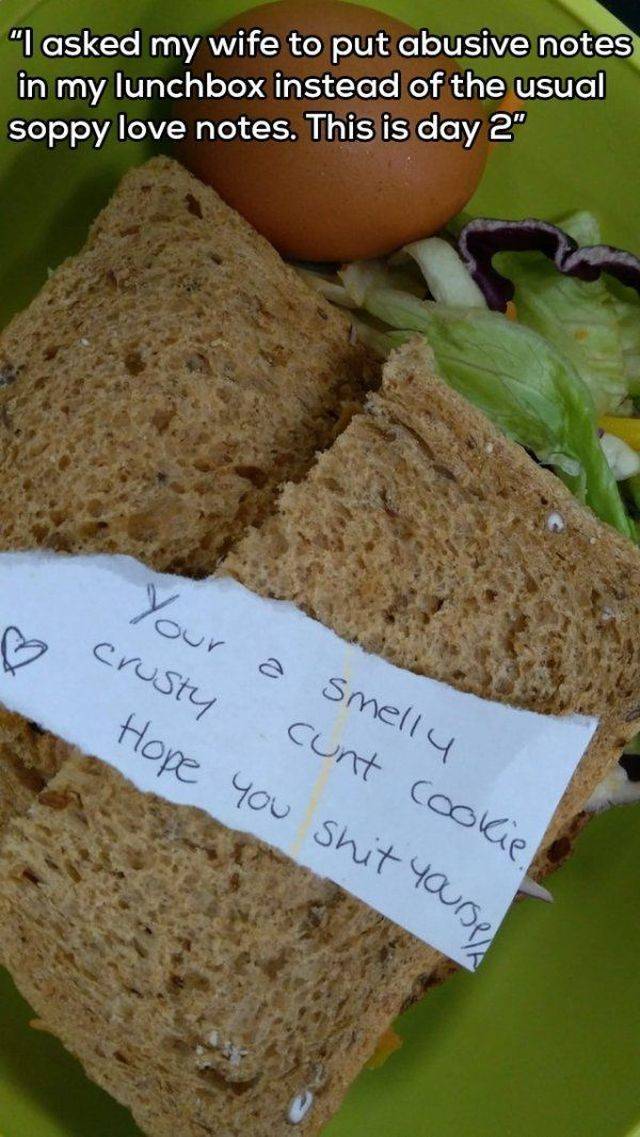 “I asked my wife to put abusive notes
in my lunchbox instead of the usual
soppy love notes. This is day 2”
Your a smelly
crusty cunt cookie.
Hope you shit yourself